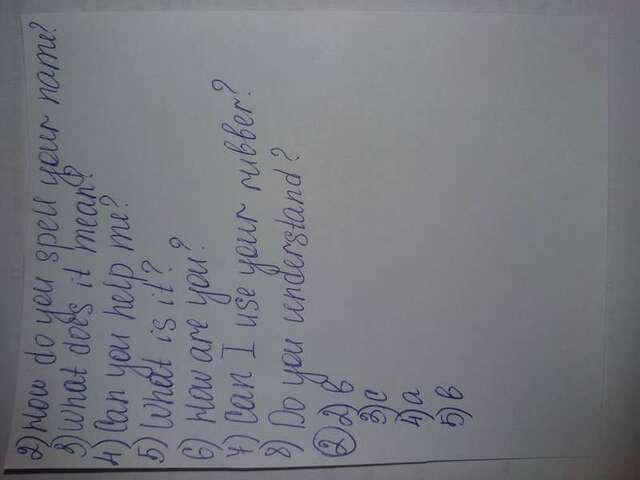 2) How do you spell your name?
3) What does it mean?
4) Can you help me?
5) What is it?
6) How are you?
7) Can I use your rubber?
8) Do you understand?
② 2) b
3) c
4) a
5) b